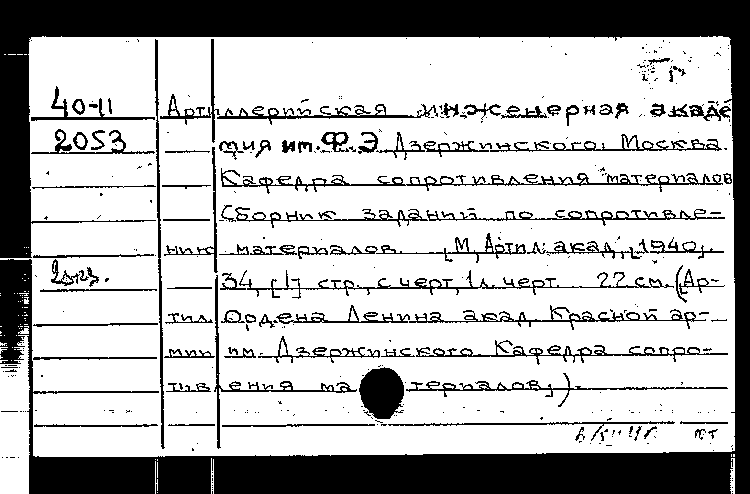 40-11 Артиллерийская инженерная акаде
2053 мия им. Ф.Э. Дзержинского. Москва.
Кафедра сопротивления материалов
Сборник заданий по сопротивле-
нию материалов. [М, Артил. акад, 1940].
2экз. 34, [1] стр., с черт, 1л. черт. 22 см. (Ар-
тил. Ордена Ленина акад. Красной ар-
мии им. Дзержинского. Кафедра сопро-
тивления материалов).